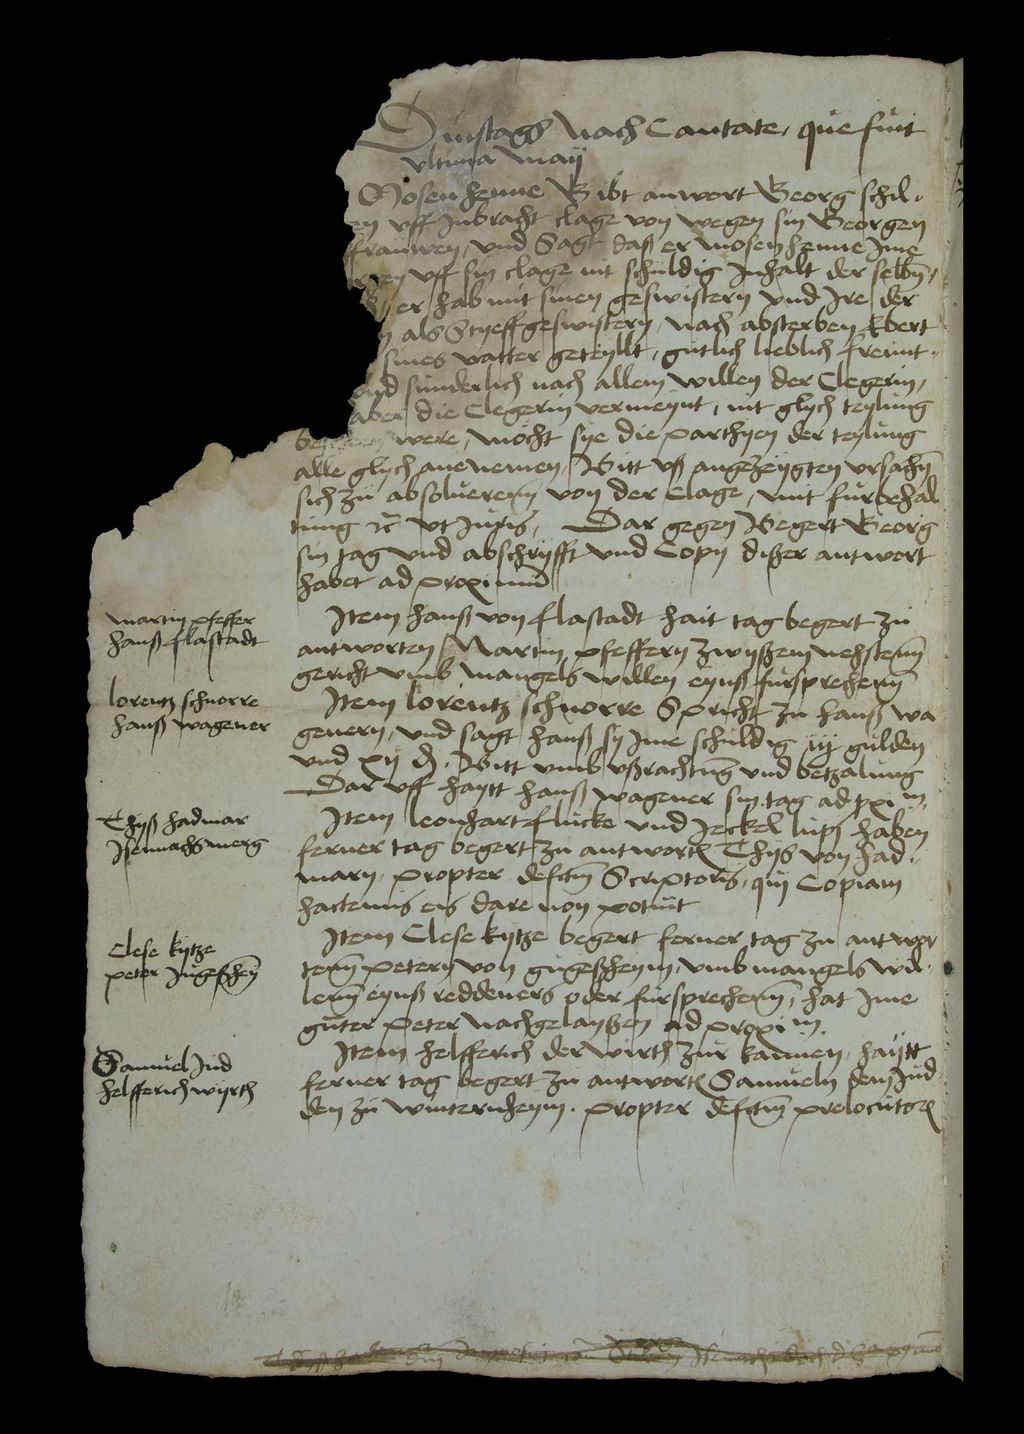 Dinstags Nach Cantate, que fuit
vltima Maij
Mosen henne Gibt antwort Georg schil-
en vff Inbracht clage von wegen sin Georgen
frauwen vnd Sagt das er Mosen henne Ime
vff sin clage nit schuldig Inhalt der selbn,
er hab mit sinen geswistern vnd Ire der
n als Styeffgeswistern, nach absterben Ebert
sines vatter geteyllt, gutlich lieblich freunt-
vnd sunderlich nach allem willen der Clegerin,
aber die Clegerin vermeynt, nit glych teylung
were, mocht sye die parthyen der teylung
alle glych ane nemen, Bitt vß angezeygten vrsachn
sich zu absoluerenn von der Clage, mit furbehal
tung etc vt Juris, Dar gegen Begert Georg
sin tag vnd abschryfft vnd Copij dißer antwort
habet ad proximum
Martin pfeffer
hanß flastadt
Item hanß von flastadt hait tag begert zu
antworten Martin pfeffern zwyßem nehstenn
gericht vmb mangels willen eynß fursprechenn
lorentz schnorre
hanß wagener
Item lorentz schnorre Spricht zu hanß wa
genern, vnd sagt hanß sy Ime schuldig iij gulden
vnd xij d. Bitt vmb vßrachtung vnd betzalung
Dar vff haytt hanß wagener sin tag ad pxim,
Thyß hadmar
Isennachs merg
Item leonhart flucke vnd Jeckel lups haben
ferner tag begert zu antworten Thys von had-
marn, propter defctm Scriptoris, qui Copiam
hactenus eis dare non potuit
Clese kytze
peter Jugeßheym
Item Clese kytze begert ferner tag zu antwor
tenn petern von gugeßheym, vmb mangels wil-
lenn eynß reddeners oder fursprechenn, hat Ime
guter peter nachgelayßen ad proxim.
Samuel Jud
helfferich wyrth
Item helfferich der wirth zur kannen, haytt
ferner tag begert zu antworten Samueln dem Jud-
den zu winternheym. propter defctm prolocutoris